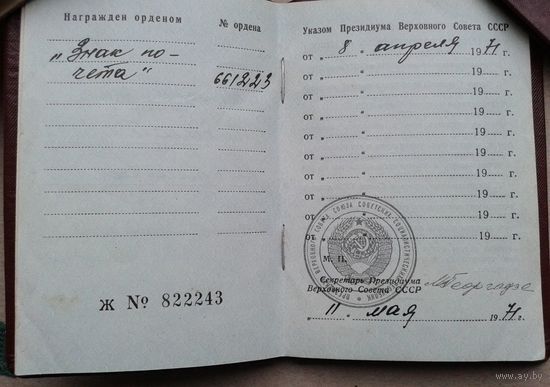 Награжден орденом
№ ордена
„Знак по-
чета"
661223
Ж № 822243
Указом Президиума Верховного Совета СССР
от „ 8 „ апреля 1971 г.
от „ „ 19 г.
от „ „ 19 г.
от „ „ 19 г.
от „ „ 19 г.
от „ „ 19 г.
от „ „ 19 г.
от „ „ 19 г.
от „ „ 19 г.
М. П.
Секретарь Президиума
Верховного Совета СССР
МГеоргадзе
„ 11 „ мая 1971 г.
www.ay.by